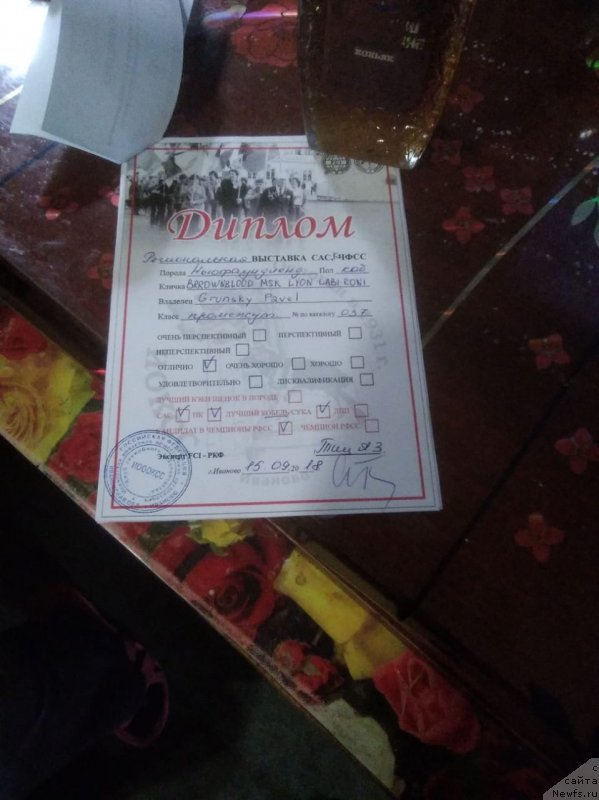 КОНЬЯК
Диплом
Региональная ВЫСТАВКА САС, ЧФСС
Порода Ньюфаундленд Пол коб
Кличка BRROWNBLOOD MSK LYON LABIRONI
Владелец Grunsky Pavel
Класс промежут № по каталогу 037
ОЧЕНЬ ПЕРСПЕКТИВНЫЙ ПЕРСПЕКТИВНЫЙ
НЕПЕРСПЕКТИВНЫЙ
ОТЛИЧНО ОЧЕНЬ ХОРОШО ХОРОШО
УДОВЛЕТВОРИТЕЛЬНО ДИСКВАЛИФИКАЦИЯ
ЛУЧШИЙ БЭБИ/ЩЕНОК В ПОРОДЕ
САС ПК ЛУЧШИЙ КОБЕЛЬ/СУКА ЛПП
КАНДИДАТ В ЧЕМПИОНЫ РФСС ЧЕМПИОН РФСС
Эксперт FCI - РКФ
г.Иваново 15.09.2018
РОССИЙСКАЯ ФЕДЕРАЦИЯ
ИООКСС
с
сайта
Newfs.ru